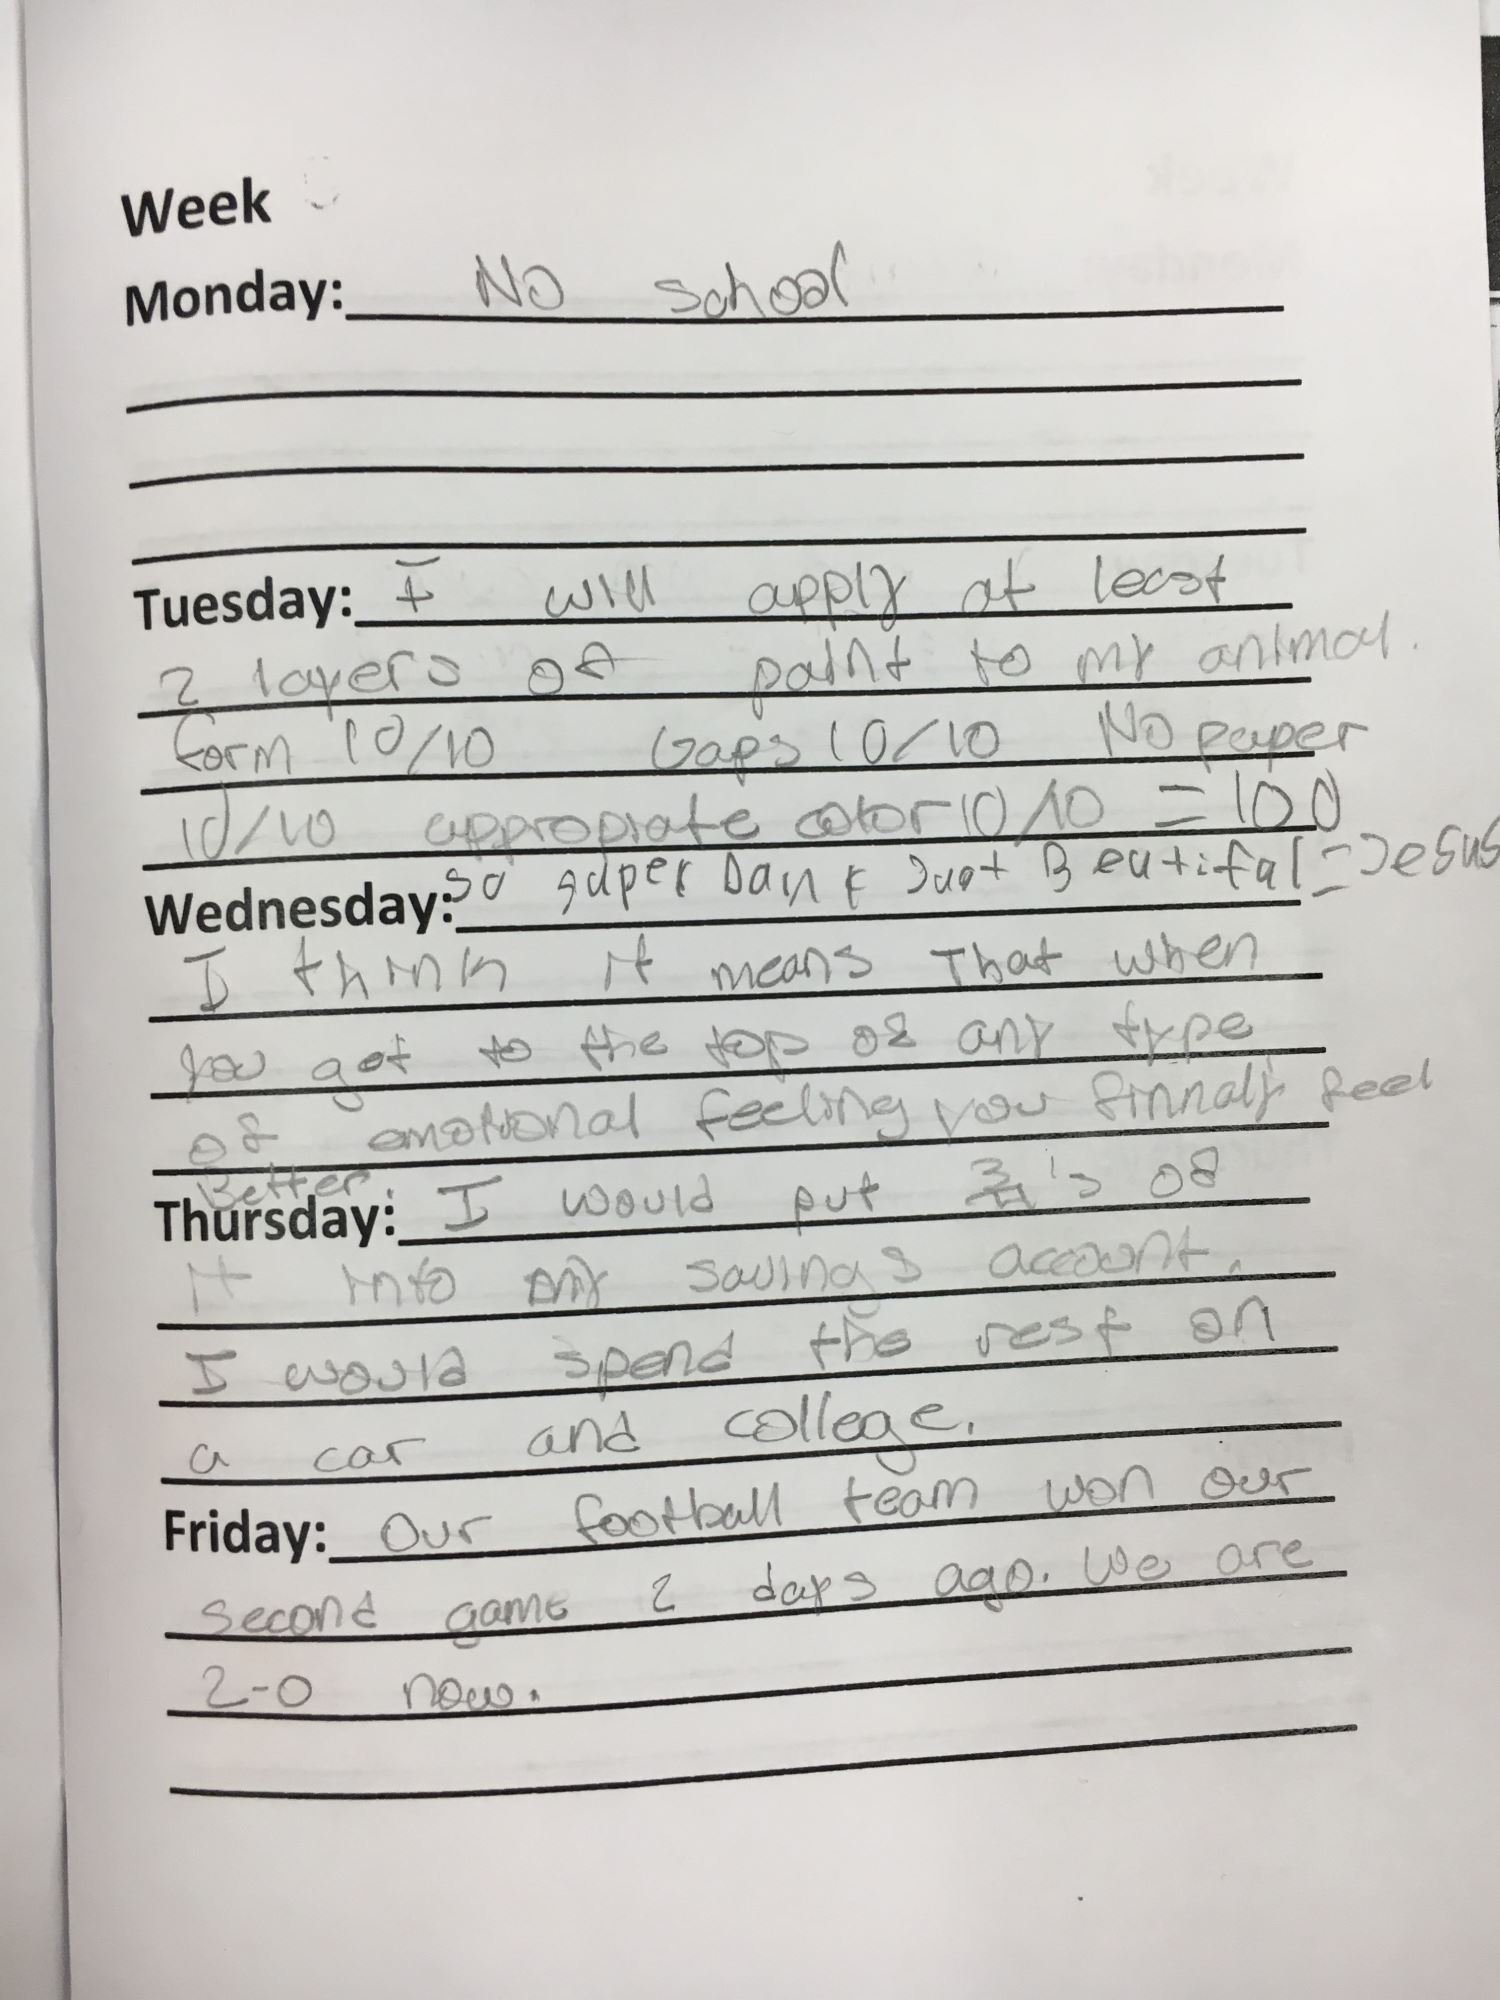 Week
Monday: No school
Tuesday: I will apply at least
2 layers of paint to my animal.
Form 10/10 Gaps 10/10 No paper
10/10 appropiate color 10/10 = 100
Wednesday: so super Dank Just Beutiful = Jesus
I think it means That when
you get to the top of any type
of emotional feeling you finnaly feel
Better.
Thursday: I would put 3/4's of
it into my savings account.
I would spend the rest on
a car and college.
Friday: Our football team won our
second game 2 days ago. We are
2-0 now.